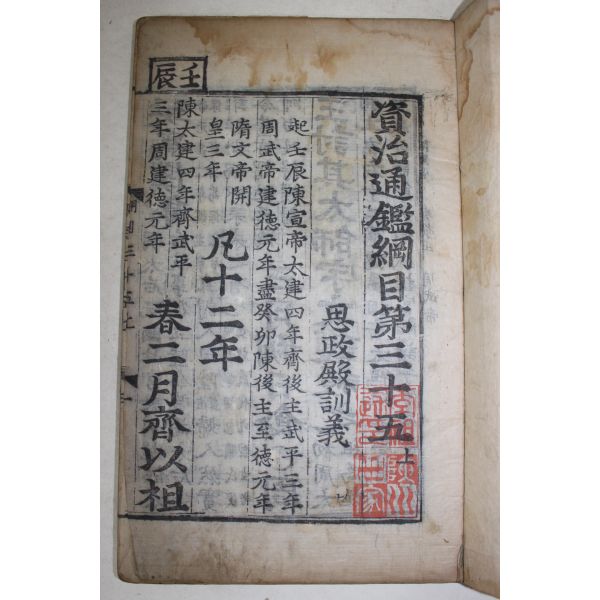 資治通鑑綱目第三十五 上
思政殿訓義
起壬辰陳宣帝太建四年齊後主武平三年
周武帝建德元年盡癸卯陳後主至德元年
隋文帝開
皇三年
凡十二年
壬辰
陳太建四年齊武平
三年周建德元年
春二月齊以祖